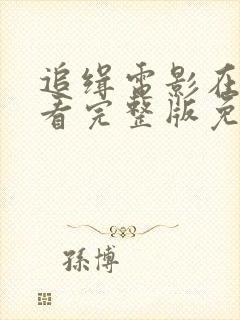 追缉电影在
看完整版免
孫博